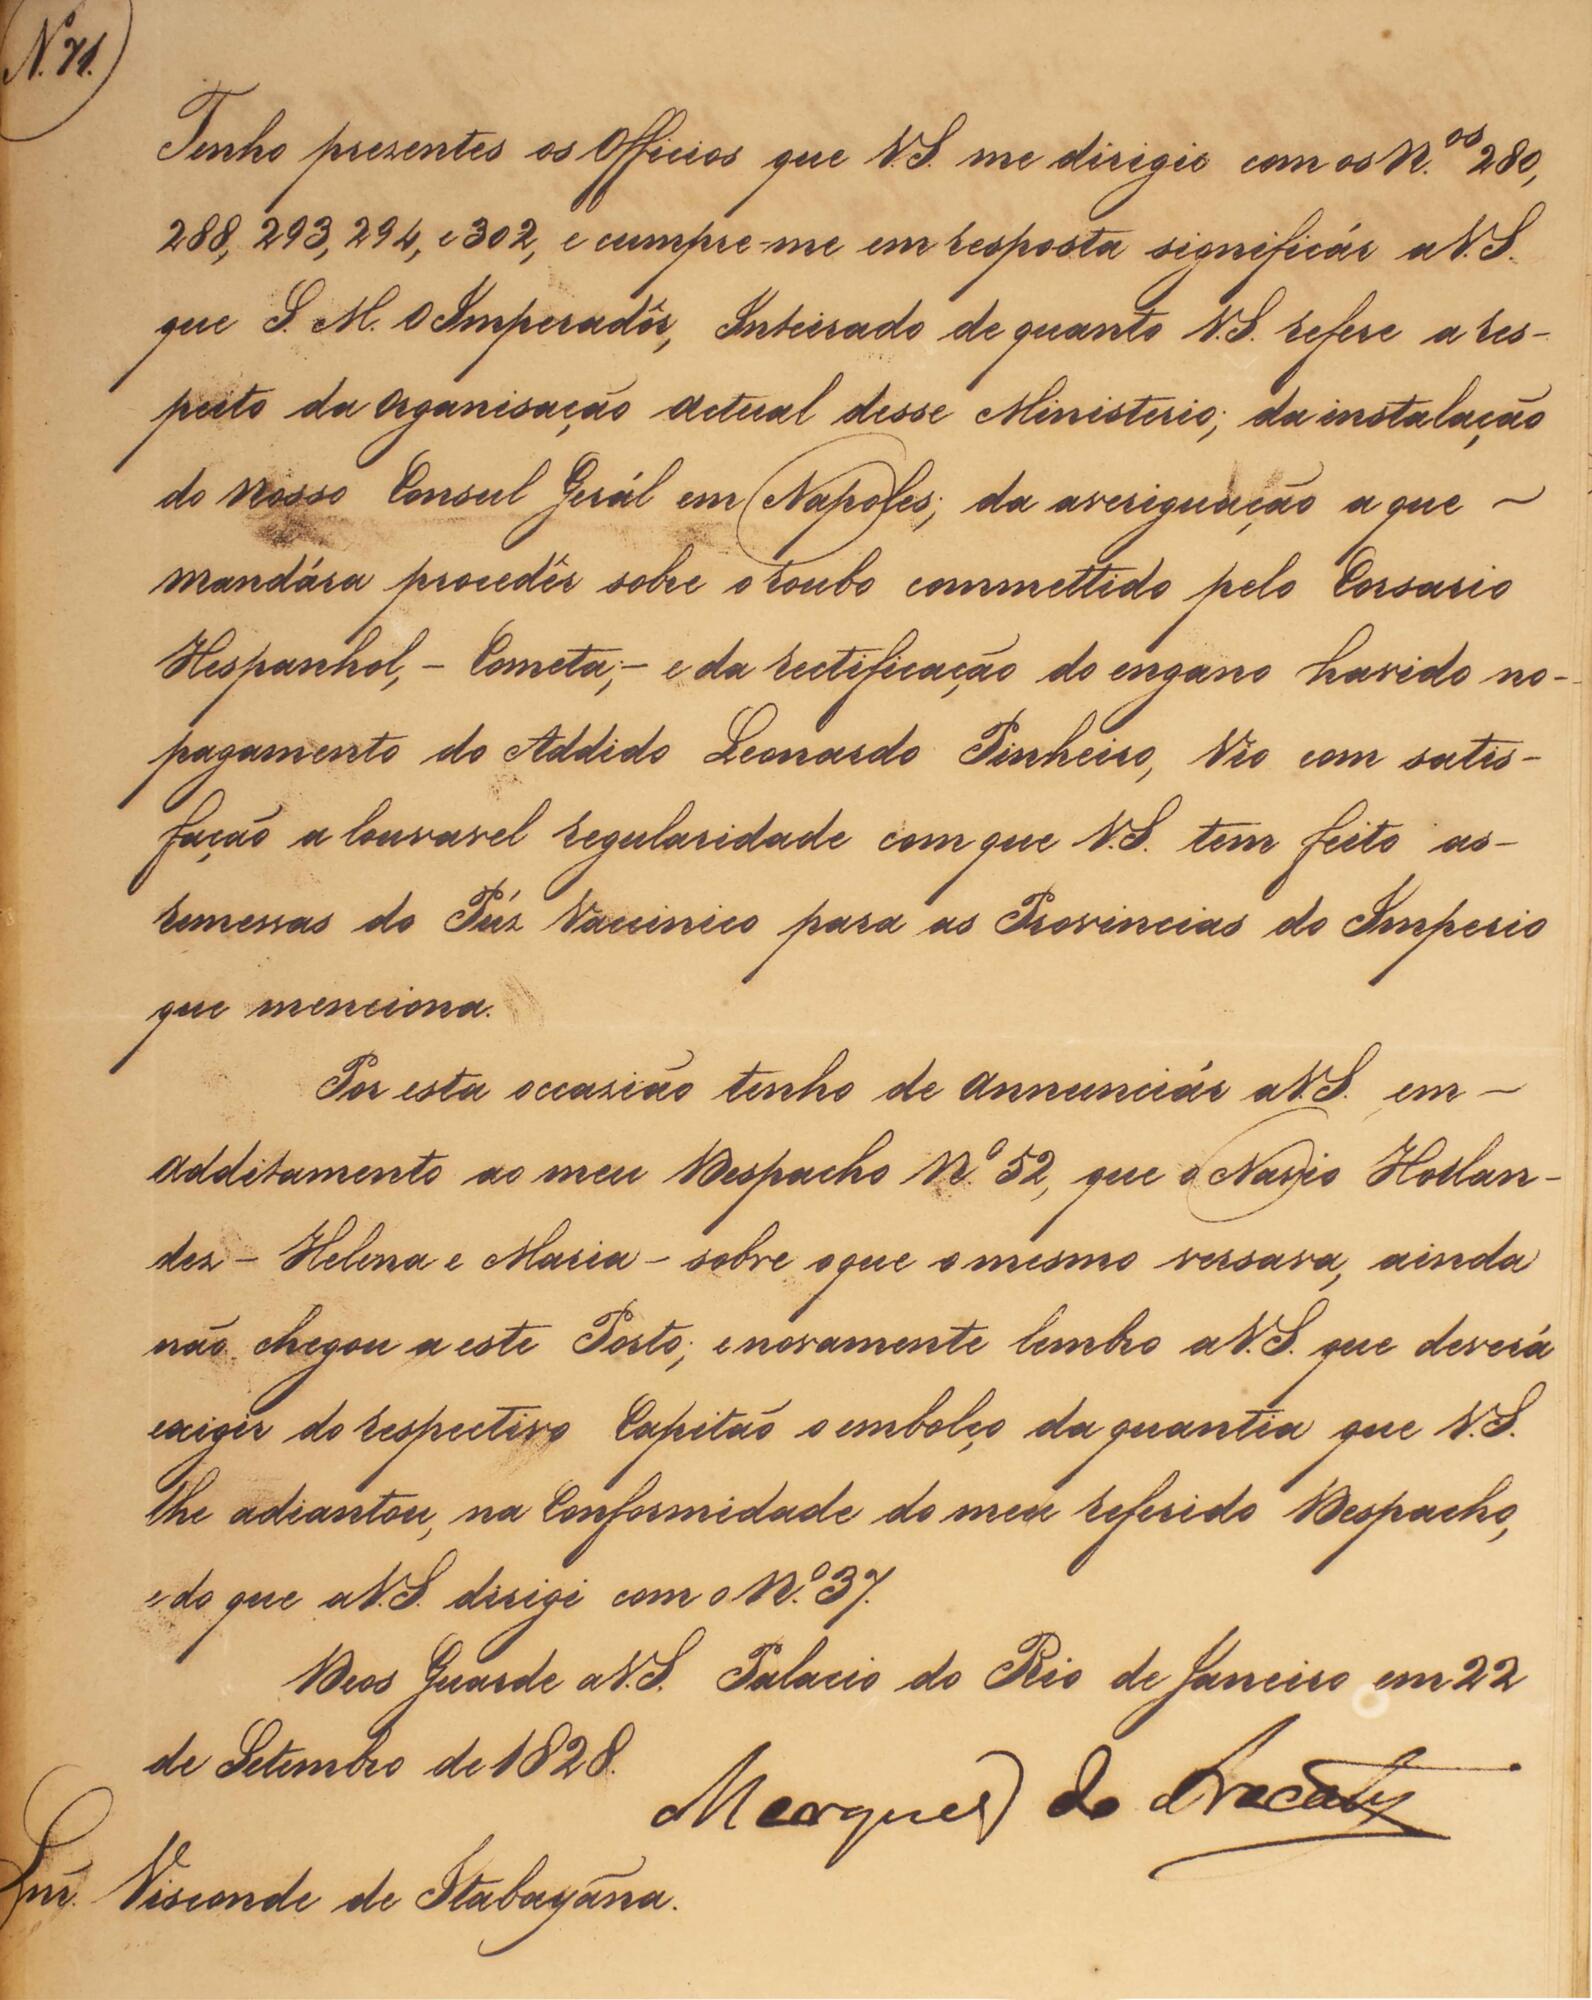 N. 71.
Tenho presentes os Officios que V.S. me dirigio com os N.os 280,
288, 293, 294, e 302, e cumpre-me em resposta significár a V.S.
que S. M. O Imperadôr, Inteirado de quanto V.S. refere a res-
peito da Organisação actual desse Ministerio; da instalação
do Nosso Consul Gerál em Napoles; da averiguação a que ~
mandára procedêr sobre o roubo commettido pelo Corsario
Hespanhol, - Cometa; - e da rectificação do engano havido no-
pagamento do Addido Leonardo Pinheiro, Vio com satis-
fação a louvavel regularidade com que V.S. tem feito as-
remessas do Púz Vaccinico para as Provincias do Imperio
que menciona.
Por esta occazião tenho de annunciár a V.S. em -
additamento ao meu Despacho N.o 52, que o Navio Hollan-
dez - Helena e Maria - sobre o que o mesmo versava, ainda
não chegou a este Porto; e novamente lembro a V.S. que deverá
exigir do respectivo Capitão o embolço da quantia que V.S.
lhe adiantou, na Conformidade do meu referido Despacho,
e do que a V.S. dirigi com o N.o 37.
Deos Guarde a V.S. Palacio do Rio de Janeiro em 22
de Setembro de 1828.
Marquez do Aracaty
Snr. Visconde de Itabayâna.